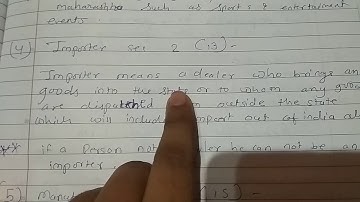 maharashtra such as sports & entertainment
events.
(4) Importer sec 2 (13) -
Importer means a dealer who brings an
goods into the state or to whom any goo
are dispatched outside the state
which will include import out of india al
** if a person not he can not be an
importer.
5) (15) -